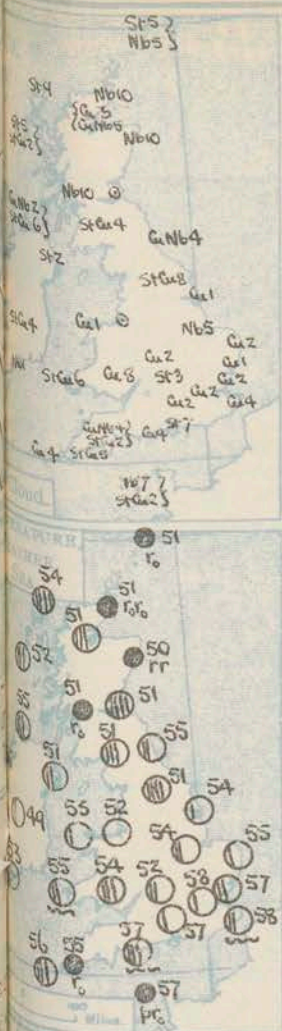 St5
Nb5
St4
Nb10
Cu3
CuNb5
St5
StCu2
Nb10
Nb10
CuNb2
StCu6
StCu4
CuNb4
St2
StCu8
Cu1
StCu4
Cu1
Nb5
Cu2
Cu2
Cu1
StCu6
Cu8
St3
Cu2
Cu2
Cu2
Cu4
CuNb4
StCu2
Cu4
St7
Cu4
StCu8
Nb7
StCu2
Cloud
51
r₀
54
51
r₀r₀
51
52
50
rr
51
51
r₀
55
51
55
51
51
54
49
55
52
54
55
53
55
54
52
58
57
57
58
56
55
57
r₀
57
pr₀
Miles